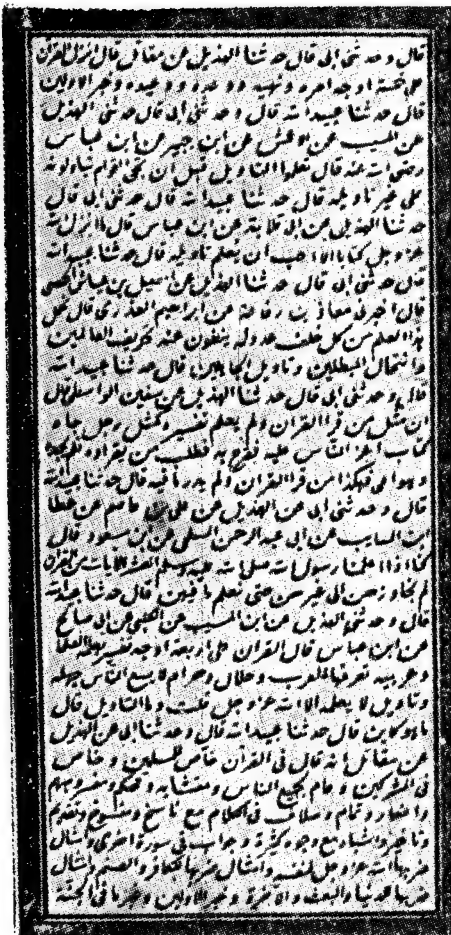 قال وحدثنى ابى قال حدثنا الهذيل عن مقاتل قال انزل القران
على خمسة اوجه امره ونهيه ووعده ووعيده وخبر الاولين
قال حدثنا عبيد الله قال وحدثنى ابى قال حدثنى الهذيل
عن المسيب عن الاعمش عن ابن جبير عن ابن عباس
رضى الله عنه قال تعلموا التاويل قبل ان يجى اقوام يتاولونه
على غير تاويله قال حدثنا عبيد الله قال حدثنى ابى قال
حدثنا الهذيل عن ابى قلابة عن ابن عباس قال ما انزل الله
عز وجل كتابا الا احب ان يعلم تاويله قال حدثنا عبيد الله
قال حدثنى ابى قال حدثنا الهذيل عن اسمعيل بن عياش الحمصى
قال اخبرنى معاذ بن رفاعة عن ابراهيم العذرى قال يحمل
هذا العلم من كل خلف عدوله ينفون عنه تحريف الغالين
وانتحال المبطلين وتاويل الجاهلين قال حدثنا عبيد الله
قال وحدثنى ابى قال حدثنا الهذيل عن سفين الواسطى قال
ان مثل من قرا القران ولم يعلم تفسيره كمثل رجل جاه
كتاب اعز الناس عليه ففرح به فطلب من يقراه
وهو امى فهكذا من قرا القران ولم يدر ما فيه قال حدثنا عبيد الله
قال وحدثنى ابى عن الهذيل عن على بن عاصم عن عطا
ابن السايب عن ابى عبد الرحمن السلمى عن بن مسعود قال
كنا اذا علمنا رسول الله صلى الله عليه وسلم العشر الايات من القران
لم نجاوزهن الى غيرهن حتى نعلم ما فيهن قال حدثنا عبيد الله
قال وحدثنى الهذيل عن ابن المسيب عن الكلبى عن ابى صالح
عن ابن عباس قال القران على اربعة اوجه تفسير يعلمه العلما
وعربية تعرفها العرب وحلال وحرام لا يسع الناس جهله
وتاويل لا يعلمه الا الله عز وجل قلت وما التاويل قال
ما هو كاين قال حدثنا عبيد الله قال وحدثنا ابى عن الهذيل
عن مقاتل انه قال فى القران خاص للمسلمين وخاص
فى المشركين وعام لجميع الناس ومتشابه ومحكم ومفسر ومبهم
واضمار وتمام وصلات فى الكلام مع ناسخ ومنسوخ وتقديم
وتاخير واشباه مع وجوه كثيرة وجواب فى سورة اخرى وامثال
ضربها الله عز وجل لنفسه وامثال ضربها للكافر والصنم وامثال
ضربها للدنيا والبعث والاخرة وخبر الاولين وخبر ما فى الجنة